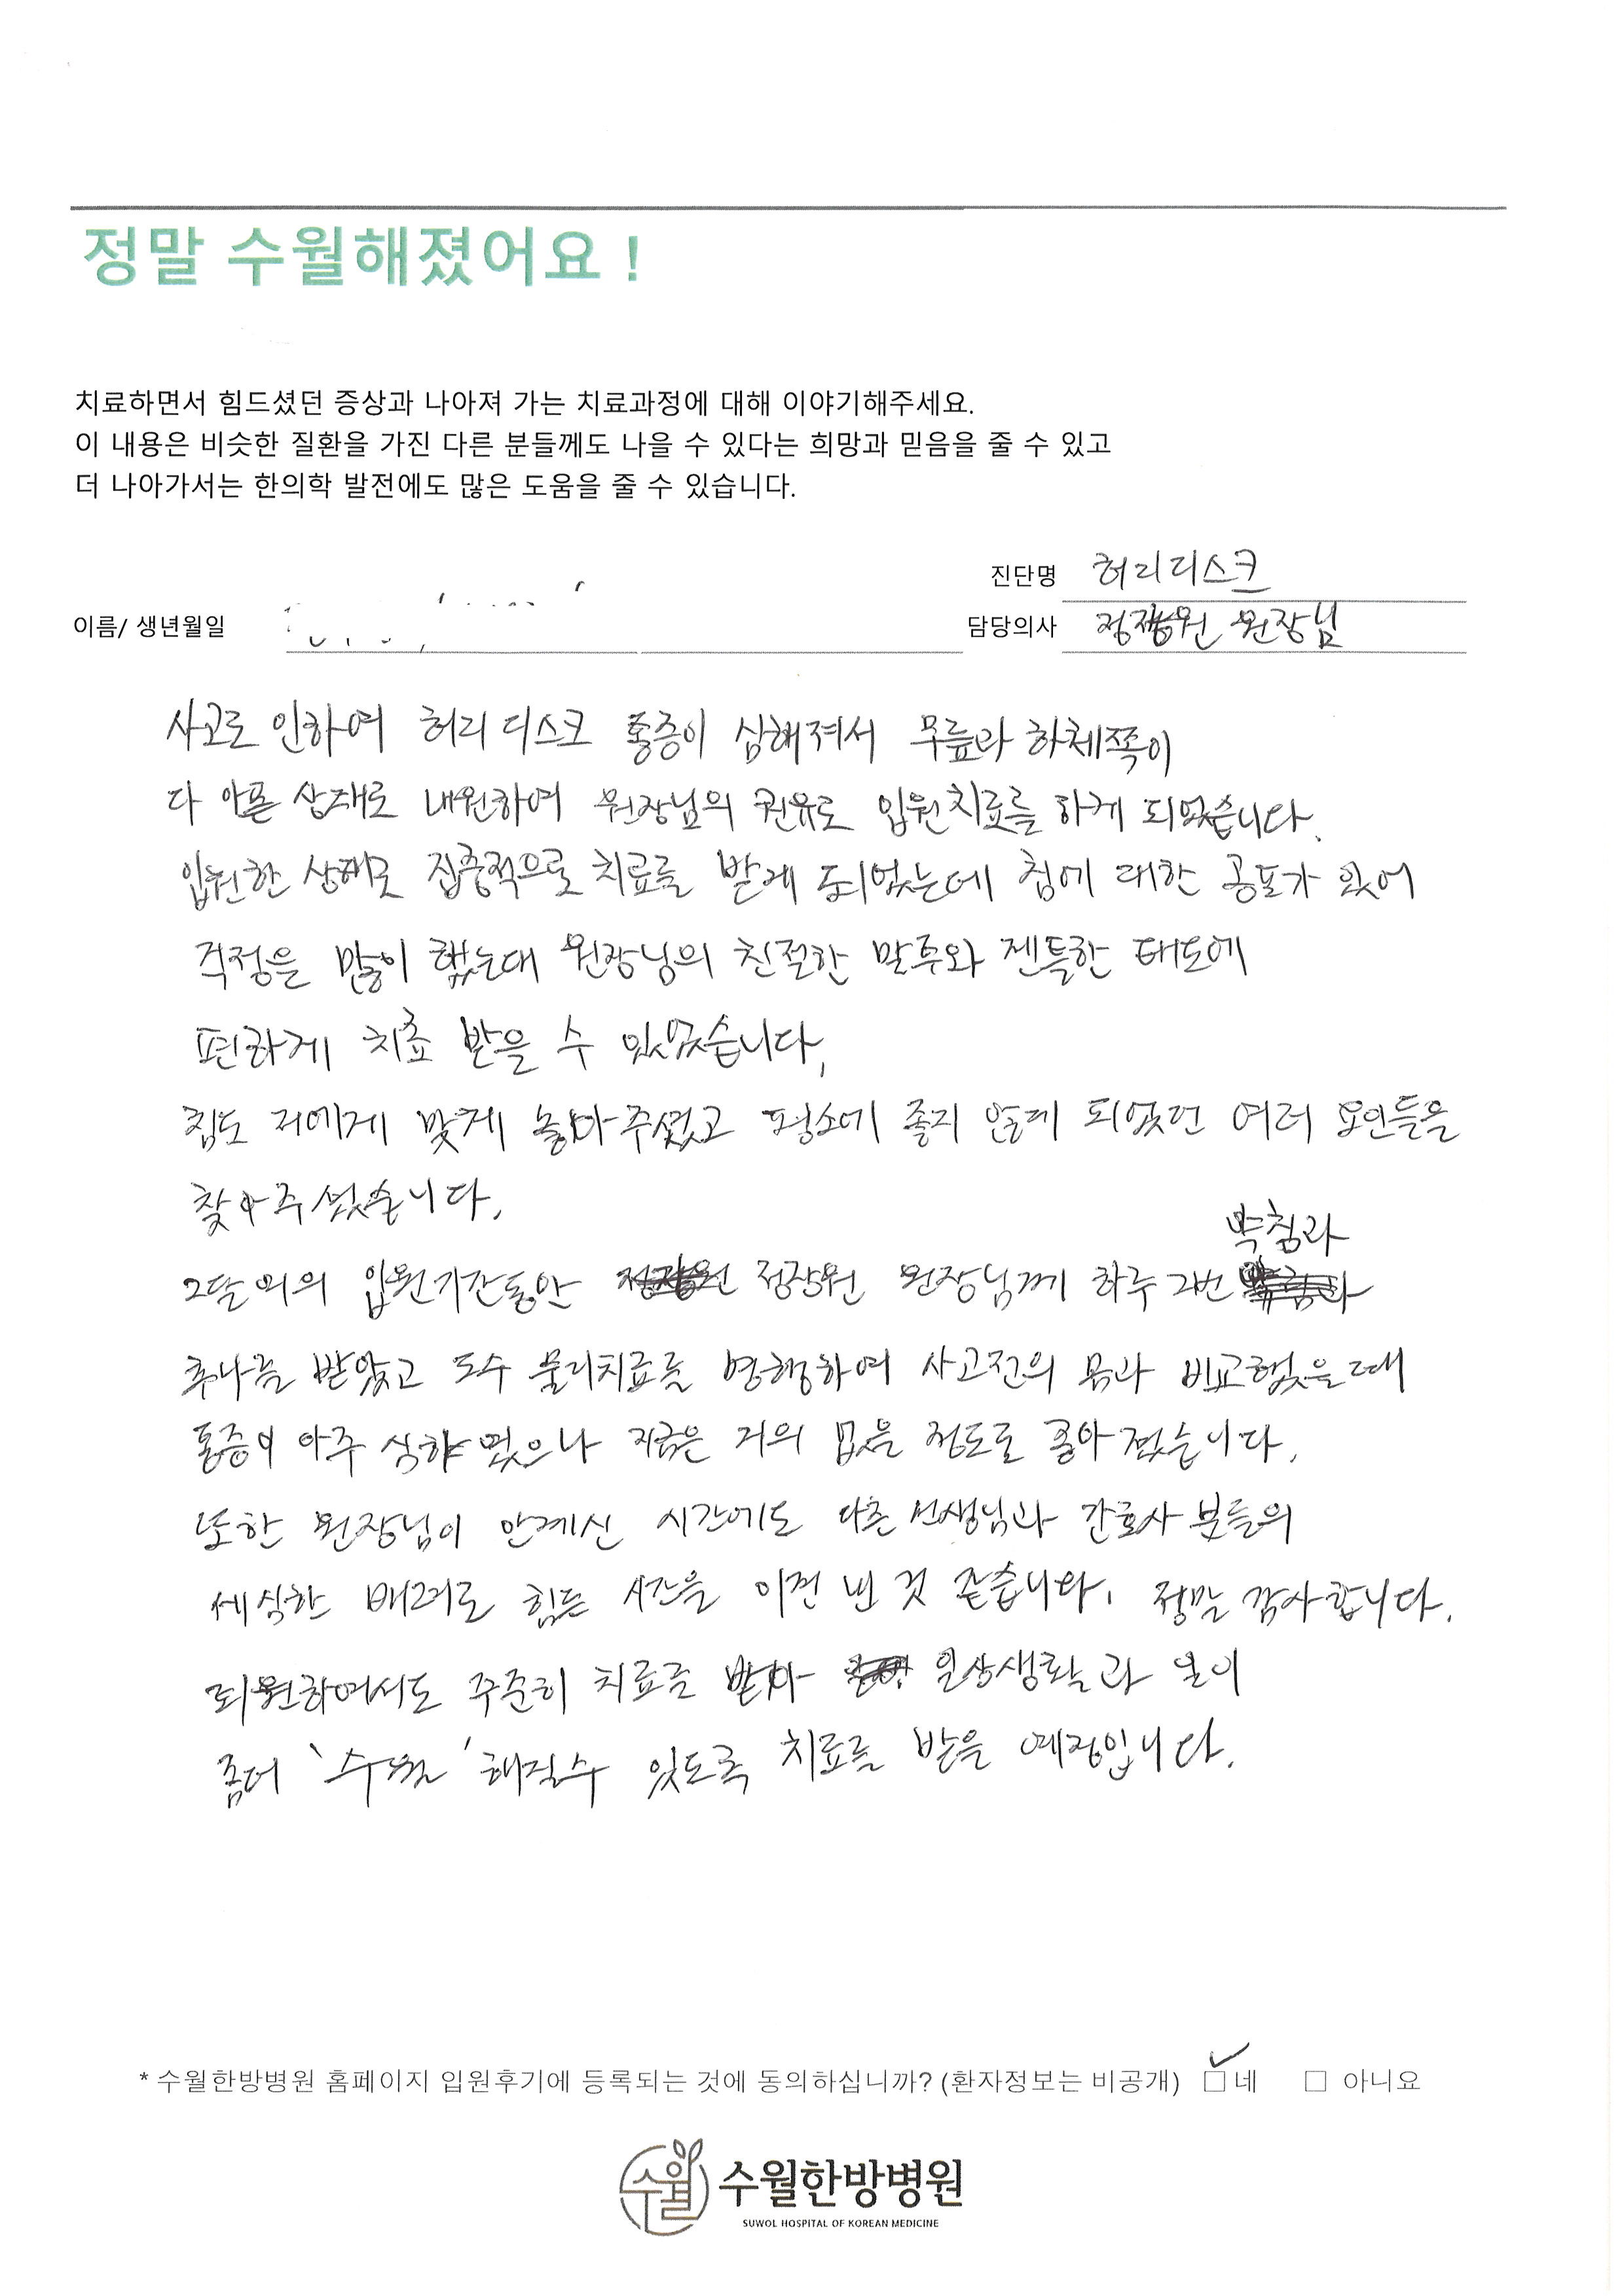 정말 수월해졌어요 !
치료하면서 힘드셨던 증상과 나아져 가는 치료과정에 대해 이야기해주세요.
이 내용은 비슷한 질환을 가진 다른 분들께도 나을 수 있다는 희망과 믿음을 줄 수 있고
더 나아가서는 한의학 발전에도 많은 도움을 줄 수 있습니다.
진단명 허리디스크
이름/ 생년월일
담당의사 정장원 원장님
사고로 인하여 허리 디스크 통증이 심해져서 무릎과 하체쪽이
다 아픈 상태로 내원하여 원장님의 권유로 입원치료를 하게 되었습니다.
입원한 상태로 집중적으로 치료를 받게 되었는데 침에 대한 공포가 있어
걱정을 많이 했는대 원장님의 친절한 말투와 젠틀한 태도에
편하게 치료 받을 수 있었습니다,
침도 저에게 맞게 놓아주셨고 평소에 좋지 않게 되었던 여러 요인들을
찾아주셨습니다.
박침과
2달 의 입원기간동안 정장원 원장님께 하루 2번
추나를 받았고 도수 물리치료를 병행하여 사고전의 몸과 비교했을때
통증이 아주 심했으나 지금은 거의 없을 정도로 좋아 졌습니다.
또한 원장님이 안계신 시간에도 다른 선생님과 간호사 분들의
세심한 배려로 힘든 시간을 이겨 낸 것 같습니다. 정말 감사합니다.
퇴원하여서도 꾸준히 치료를 받아 일상생활과 일이
좀더 '수월'해질수 있도록 치료를 받을 예정입니다.
* 수월한방병원 홈페이지 입원후기에 등록되는 것에 동의하십니까? (환자정보는 비공개) ☑네 □ 아니요
수월 수월한방병원
SUWOL HOSPITAL OF KOREAN MEDICINE